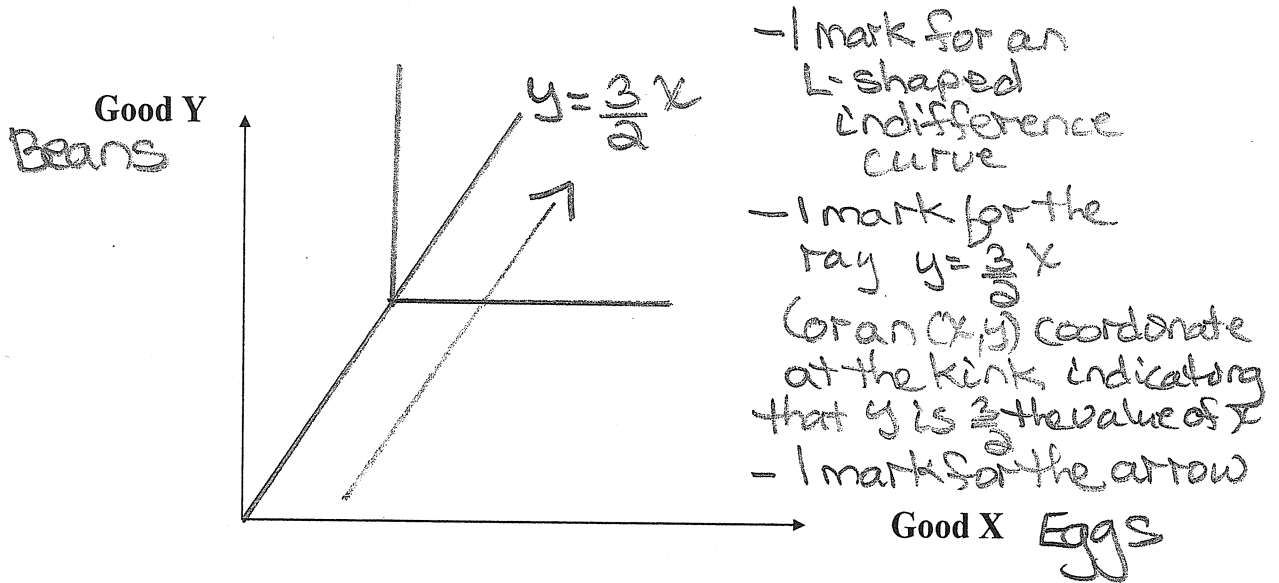 Good Y
Beans
y = 3/2 x
- 1 mark for an
L-shaped
indifference
curve
- 1 mark for the
ray y = 3/2 x
(or an (x,y) coordinate
at the kink indicating
that y is 3/2 the value of x
- 1 mark for the arrow
Good X Eggs